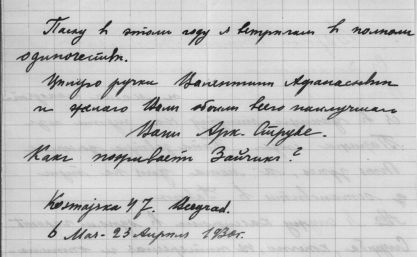 Пасху в этомъ году я встрѣчаю в полномъ
одиночествѣ.
Цѣлую ручки Валентины Афанасьевны
и желаю Вамъ обоимъ всего наилучшаго
Вашъ Арк. Струве.
Какъ поживаетъ Зайчикъ?
Kosmajska 47. Beograd.
6 Мая - 23 Апрѣля 1930г.